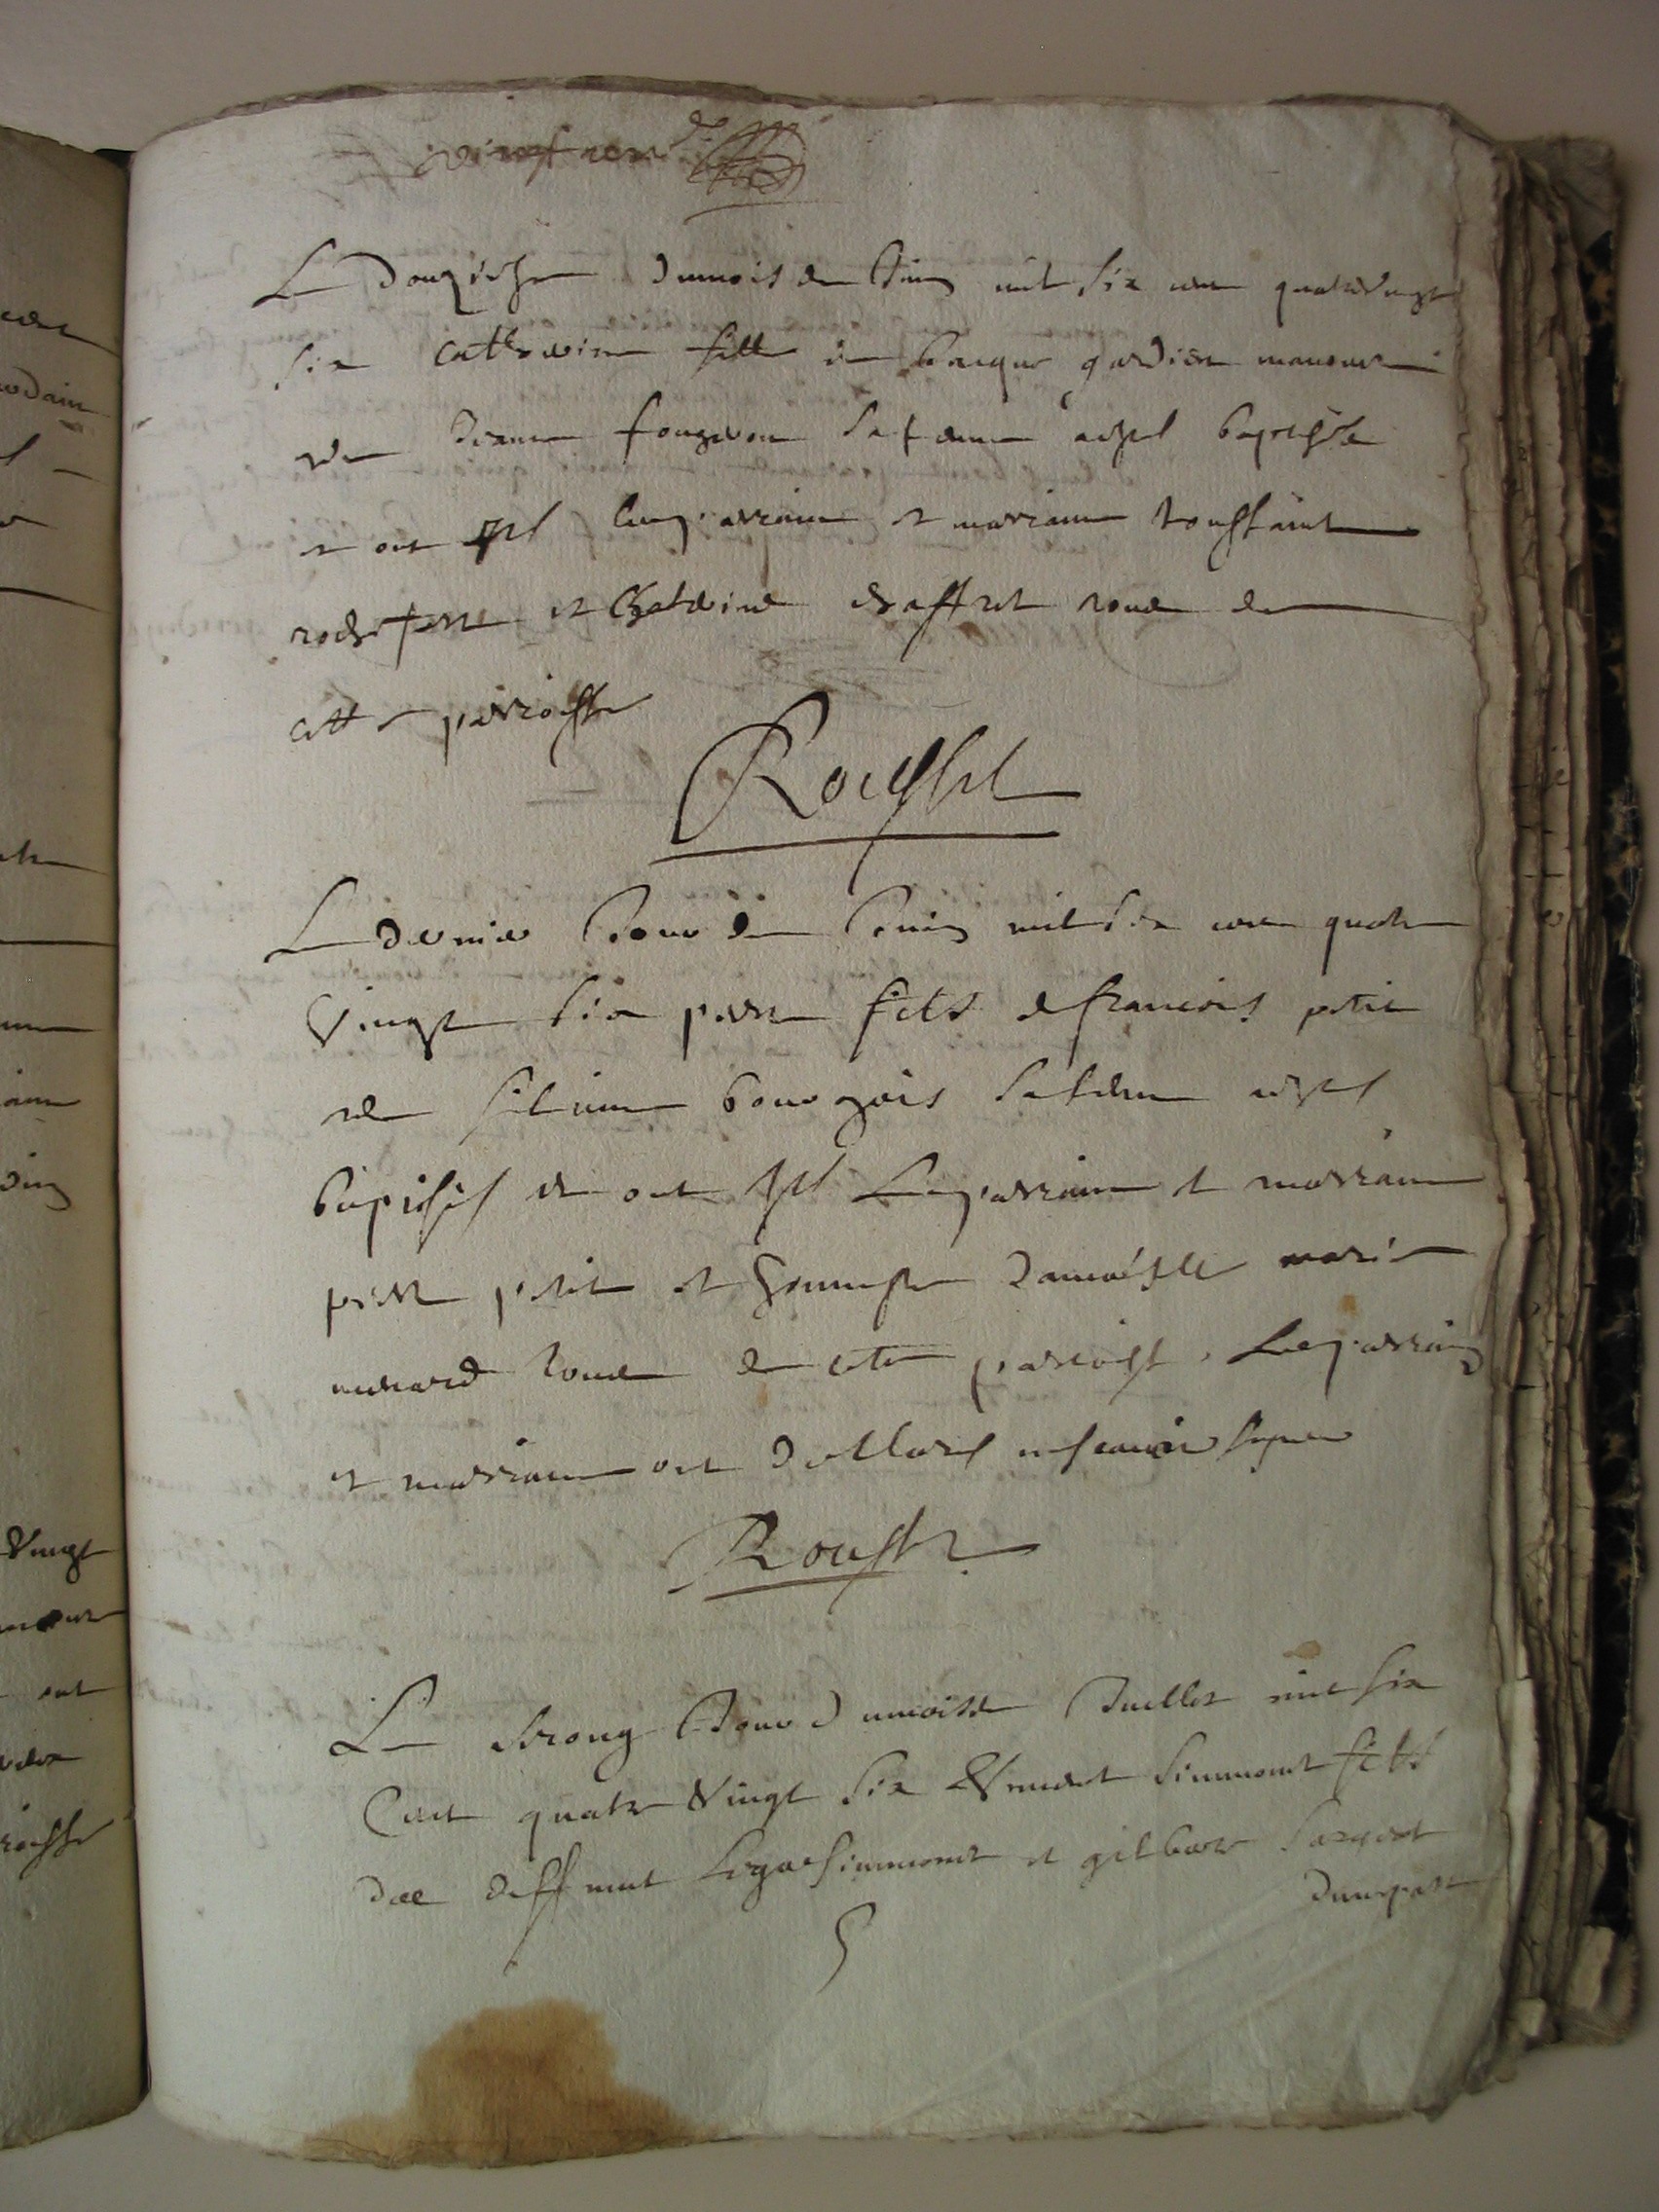 Le douziesme dumois de Juin mil six cen quatrevingt
six Catherine fille de Jacque gardien manouvre
et de Jeanne sa femme a esté baptisée
et ont esté les parrain et marraine toussaint
et Catherine tous de
cette parroisse
Rousset
Le dernier Jour de Juin mil six cen quatre
Vingt six pierre fils de francois petit
et de bourgois sa femme a esté
baptisé et ont esté Les parrain et marraine
pierre petit et honneste damoiselle marie
menard tous de cette parroisse Les parrain
et marraine ont desclaré ne scavoir signer
Rousset
Le Jour du mois de Juillet mil six
Cent quatre Vingt six Vincent simmonet fils
de deffunt simmonet et gilberte
dunepart